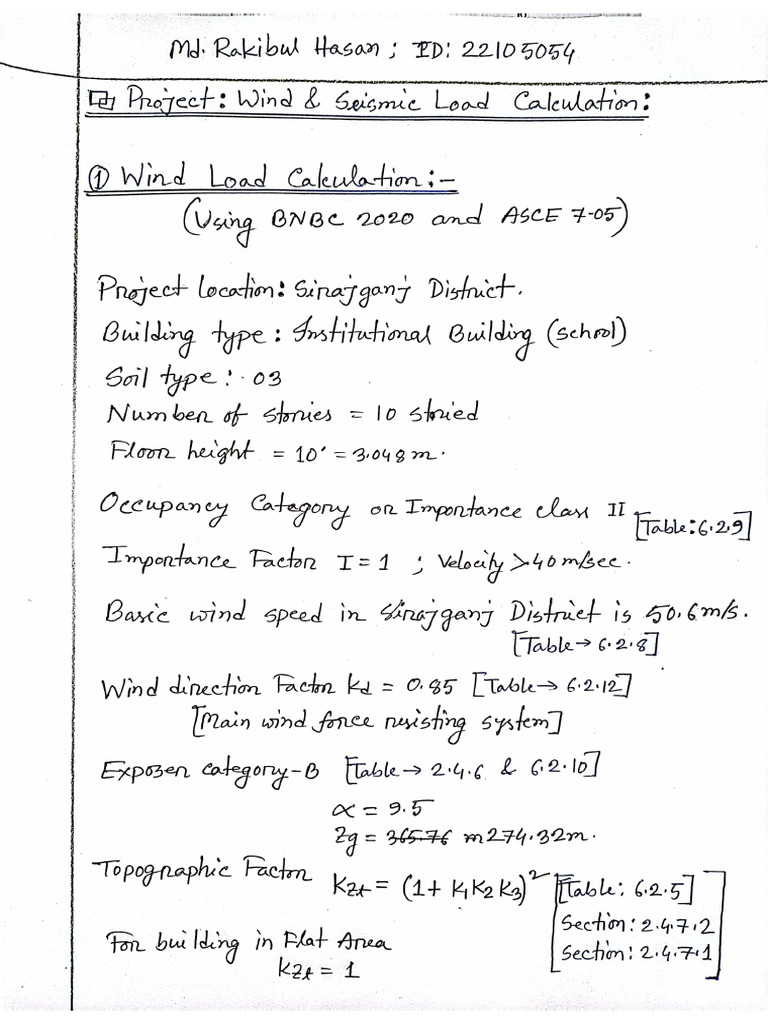 Md. Rakibul Hasan ; ID: 22105054
Project: Wind & Seismic Load Calculation:
① Wind Load Calculation:-
(Using BNBC 2020 and ASCE 7-05)
Project location: Sirajganj District.
Building type: Institutional Building (school)
Soil type: 03
Number of stories = 10 storied
Floor height = 10' = 3.048 m.
Occupancy Category or Importance class II [Table: 6.2.9]
Importance Factor I = 1 ; Velocity > 40 m/sec.
Basic wind speed in Sirajganj District is 50.6 m/s.
[Table → 6.2.8]
Wind direction Factor kd = 0.85 [Table → 6.2.12]
[Main wind force resisting system]
Expozer category-B [Table → 2.4.6 & 6.2.10]
α = 9.5
Zg = 365.76 m 274.32m.
Topographic Factor
Kzt = (1+ K1 K2 K3)² [Table: 6.2.5]
Section: 2.4.7.2
Section: 2.4.7.1
For building in Flat Area
Kzt = 1